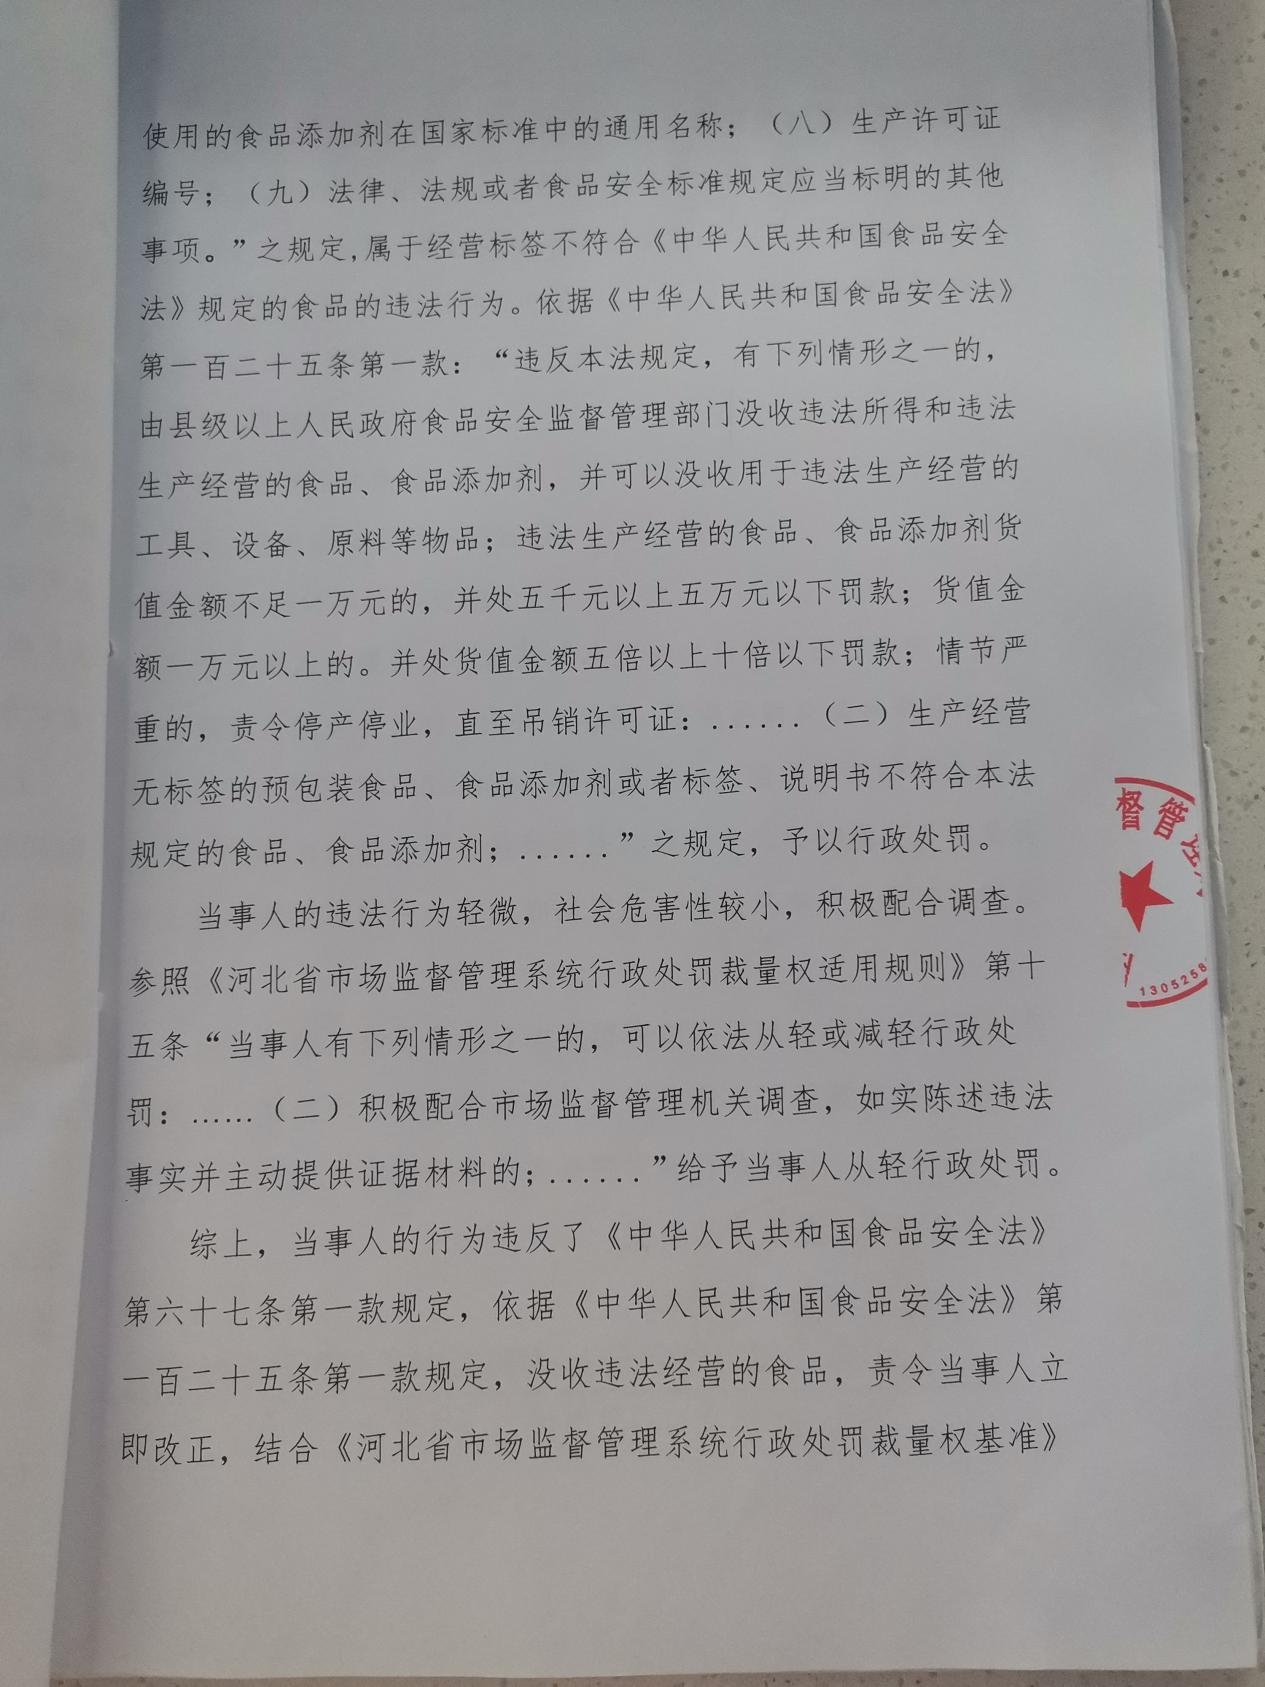 使用的食品添加剂在国家标准中的通用名称；（八）生产许可证
编号；（九）法律、法规或者食品安全标准规定应当标明的其他
事项。”之规定,属于经营标签不符合《中华人民共和国食品安全
法》规定的食品的违法行为。依据《中华人民共和国食品安全法》
第一百二十五条第一款：“违反本法规定，有下列情形之一的，
由县级以上人民政府食品安全监督管理部门没收违法所得和违法
生产经营的食品、食品添加剂，并可以没收用于违法生产经营的
工具、设备、原料等物品；违法生产经营的食品、食品添加剂货
值金额不足一万元的，并处五千元以上五万元以下罚款；货值金
额一万元以上的。并处货值金额五倍以上十倍以下罚款；情节严
重的，责令停产停业，直至吊销许可证：......（二）生产经营
无标签的预包装食品、食品添加剂或者标签、说明书不符合本法
规定的食品、食品添加剂；......”之规定，予以行政处罚。
当事人的违法行为轻微，社会危害性较小，积极配合调查。
参照《河北省市场监督管理系统行政处罚裁量权适用规则》第十
五条“当事人有下列情形之一的，可以依法从轻或减轻行政处
罚：......（二）积极配合市场监督管理机关调查，如实陈述违法
事实并主动提供证据材料的；......”给予当事人从轻行政处罚。
综上，当事人的行为违反了《中华人民共和国食品安全法》
第六十七条第一款规定，依据《中华人民共和国食品安全法》第
一百二十五条第一款规定，没收违法经营的食品，责令当事人立
即改正，结合《河北省市场监督管理系统行政处罚裁量权基准》
督管
1305258